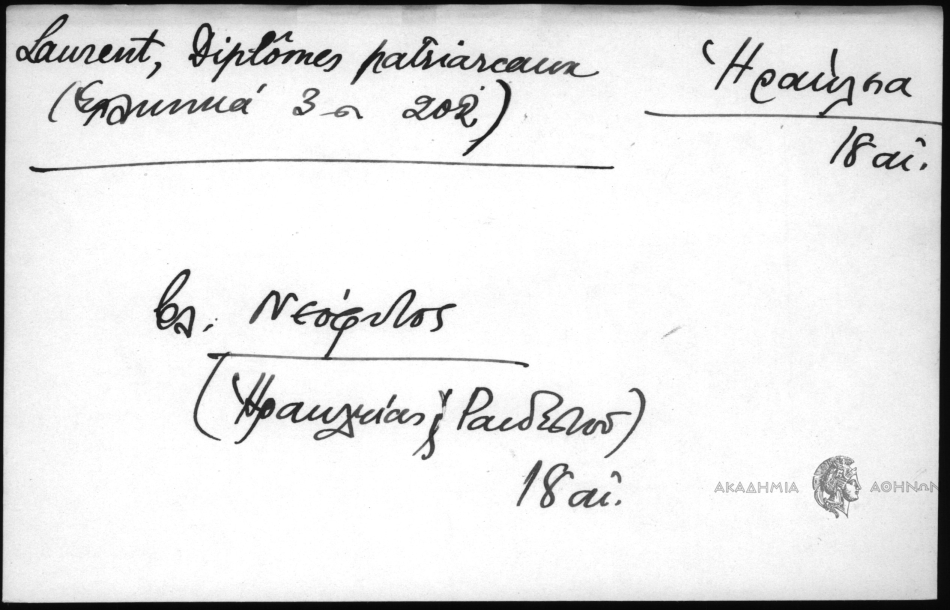 Laurent, Diplômes patriarcaux
(Ἑλληνικά 3 σ. 202)
Ἡράκλεια
18 αἰ.
βλ. Νεόφυτος
(Ἡρακλείας & Ραιδεστοῦ)
18 αἰ.
ΑΚΑΔΗΜΙΑ ΑΘΗΝΩΝ